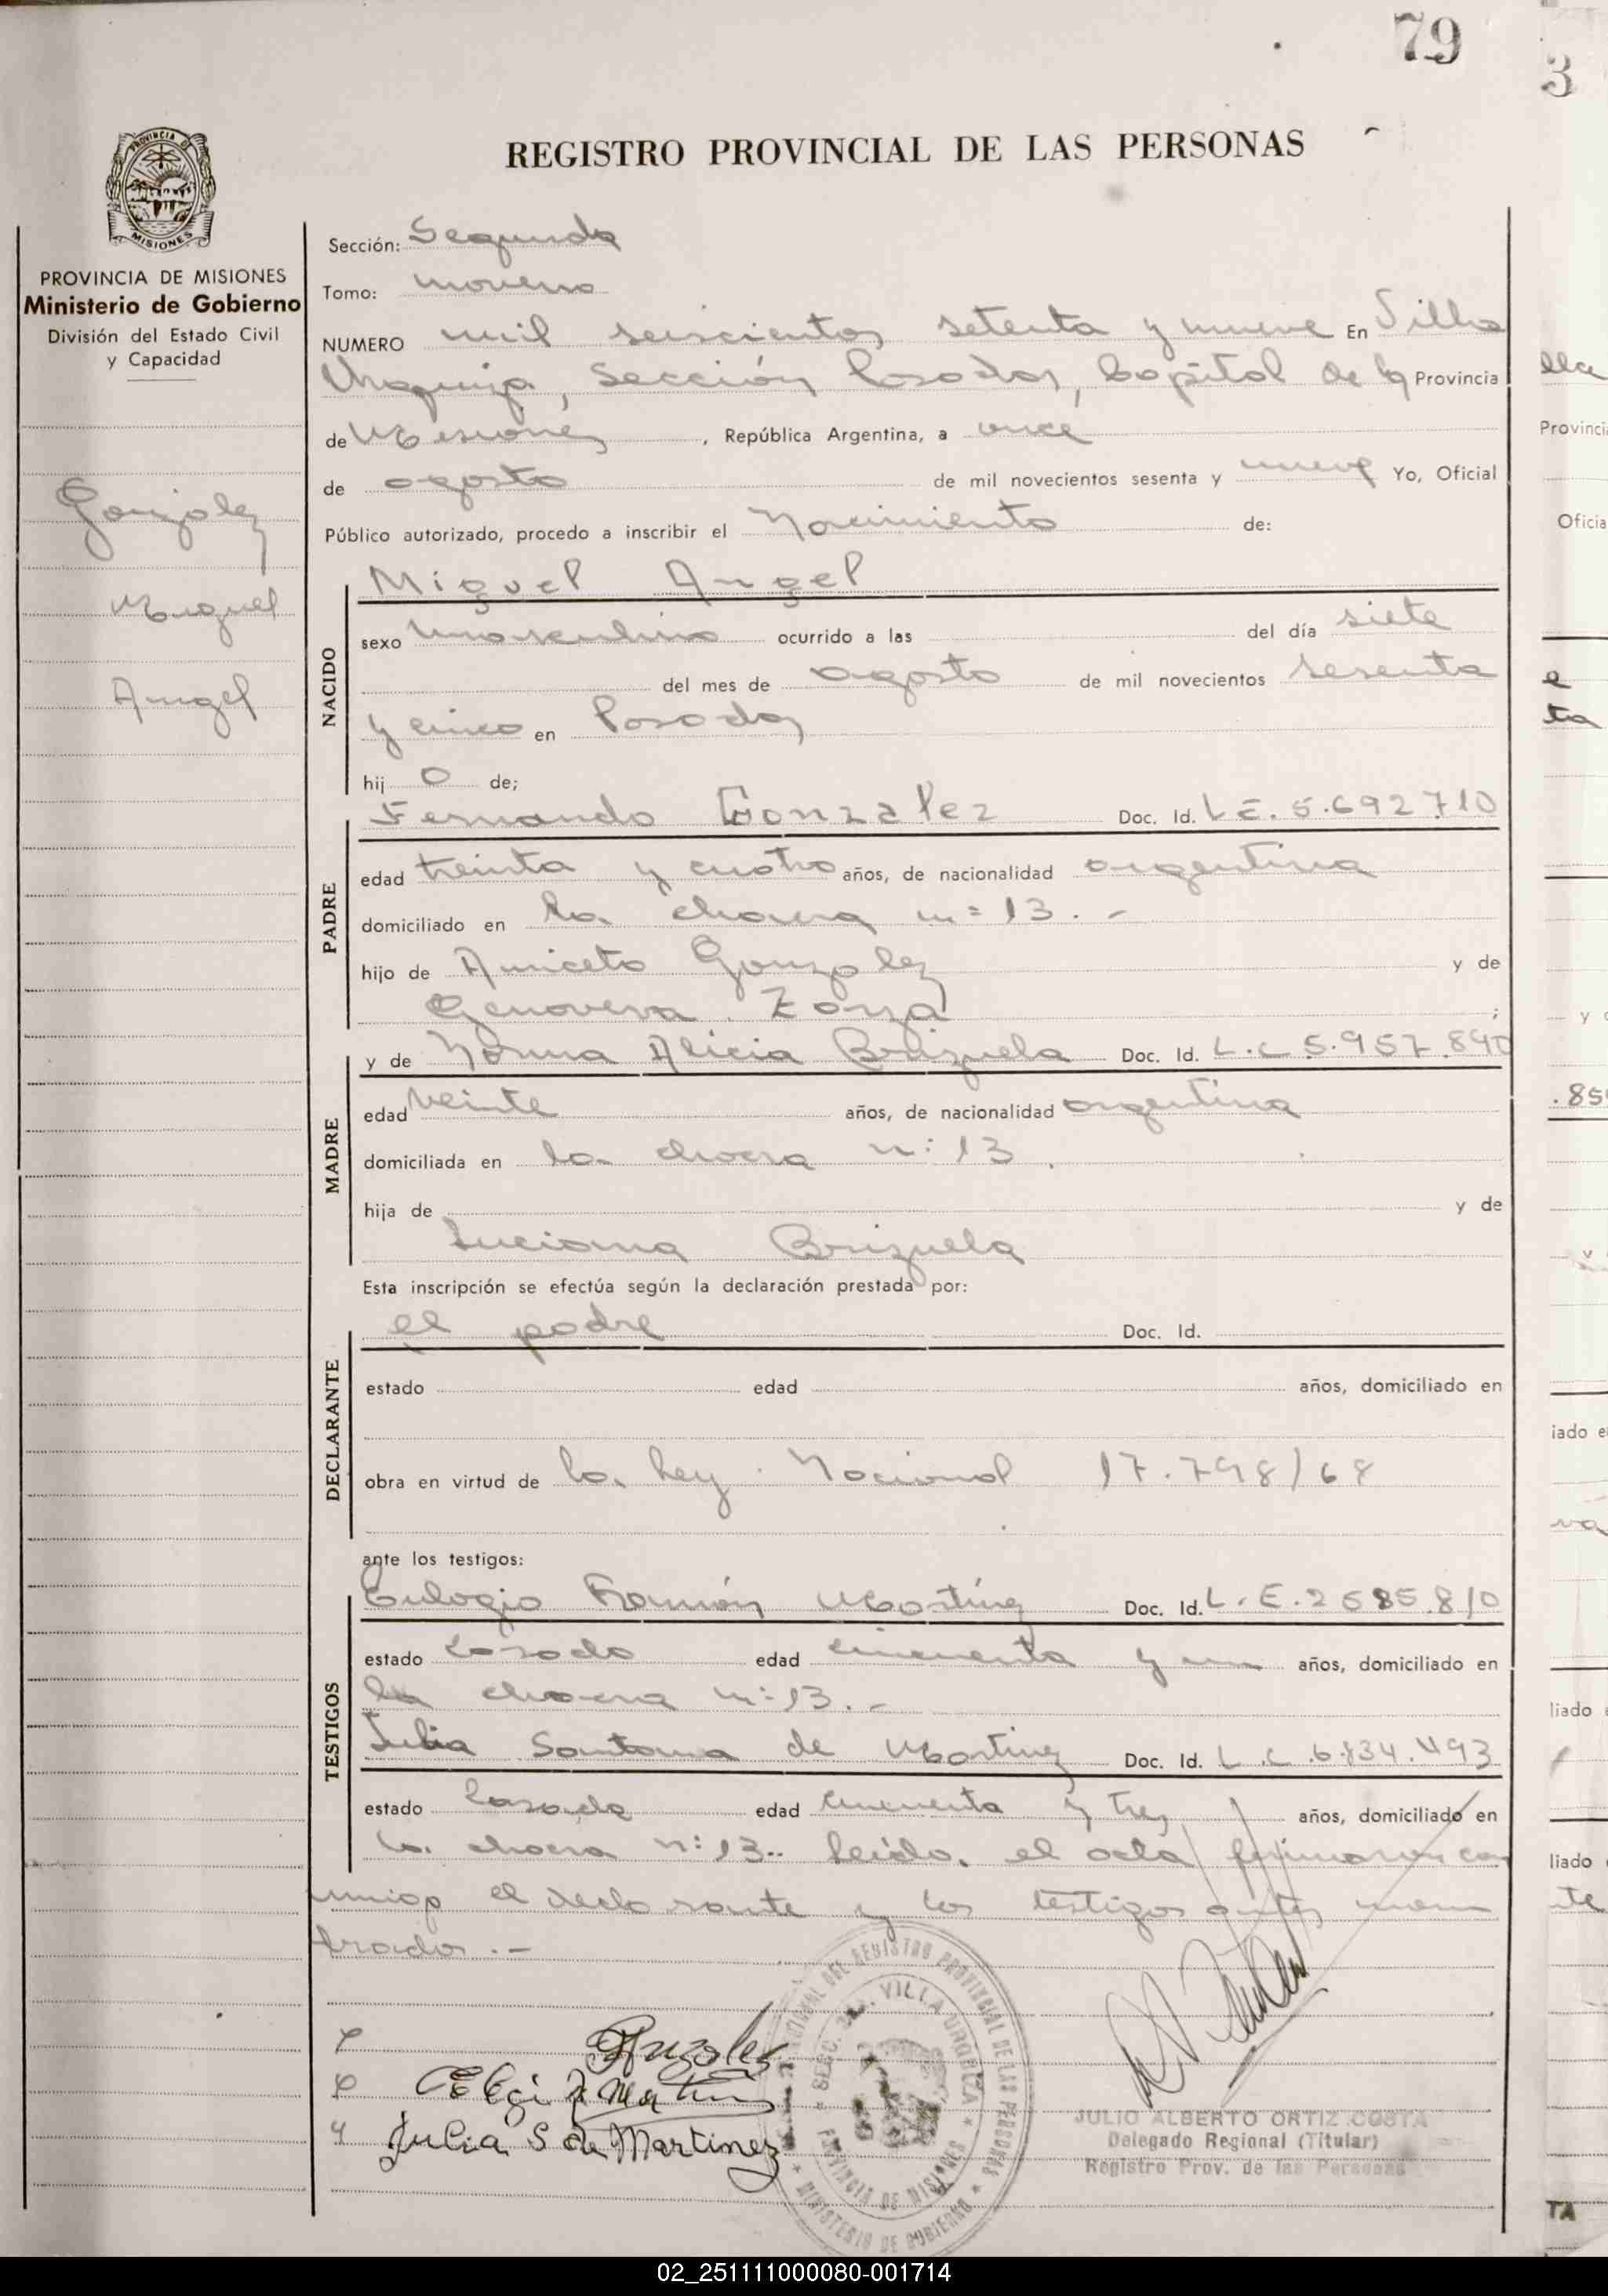 79
3
REGISTRO PROVINCIAL DE LAS PERSONAS
PROVINCIA DE
MISIONES
PROVINCIA DE MISIONES
Ministerio de Gobierno
División del Estado Civil
y Capacidad
Gonzalez
Miguel
Angel
Sección: Segunda
Tomo: noveno
NUMERO mil seiscientos setenta y nueve En Villa
Urquiza, Sección Posadas, Capital de la Provincia
de Misiones, República Argentina, a once
de agosto de mil novecientos sesenta y nueve Yo, Oficial
Público autorizado, procedo a inscribir el Nacimiento de:
NACIDO
Miguel Angel
sexo masculino ocurrido a las del día siete
del mes de agosto de mil novecientos sesenta
y cinco en Posadas
hij o de;
PADRE
Fernando Gonzalez Doc. Id. L E. 5.692710
edad treinta y cuatro años, de nacionalidad argentina
domiciliado en la chacra n= 13. -
hijo de Aniceto Gonzalez y de
Genoveva ;
MADRE
y de Norma Alicia Brizuela Doc. Id. L.C 5.957.890
edad veinte años, de nacionalidad argentina
domiciliada en la chacra n: 13.
hija de y de
Luciana Brizuela
Esta inscripción se efectúa según la declaración prestada por:
DECLARANTE
el padre Doc. Id.
estado edad años, domiciliado en
obra en virtud de la Ley Nacional 17.798/68
ante los testigos:
TESTIGOS
Eulogio Ramón Martinez Doc. Id. L. E. 2585.810
estado casado edad cincuenta y un años, domiciliado en
la chacra n:13. -
Julia Santana de Martinez Doc. Id. L. C 6.834.493
estado casada edad cincuenta y tres años, domiciliado en
la chacra n:13.. Leída, el acta firmaron con
migo el declarante y los testigos antes nom
brados. -
Gnzalez
Julia S de Martinez
REGISTRO PROVINCIAL DE LAS PERSONAS
VILLA URQUIZA
PROVINCIA DE MISIONES
MINISTERIO DE GOBIERNO
JULIO ALBERTO ORTIZ COSTA
Delegado Regional (Titular)
Registro Prov. de las Personas
lla
Provinci
Oficia
e
ta
y
.85
iado e
va
liado
liado
te
TA
02_251111000080-001714